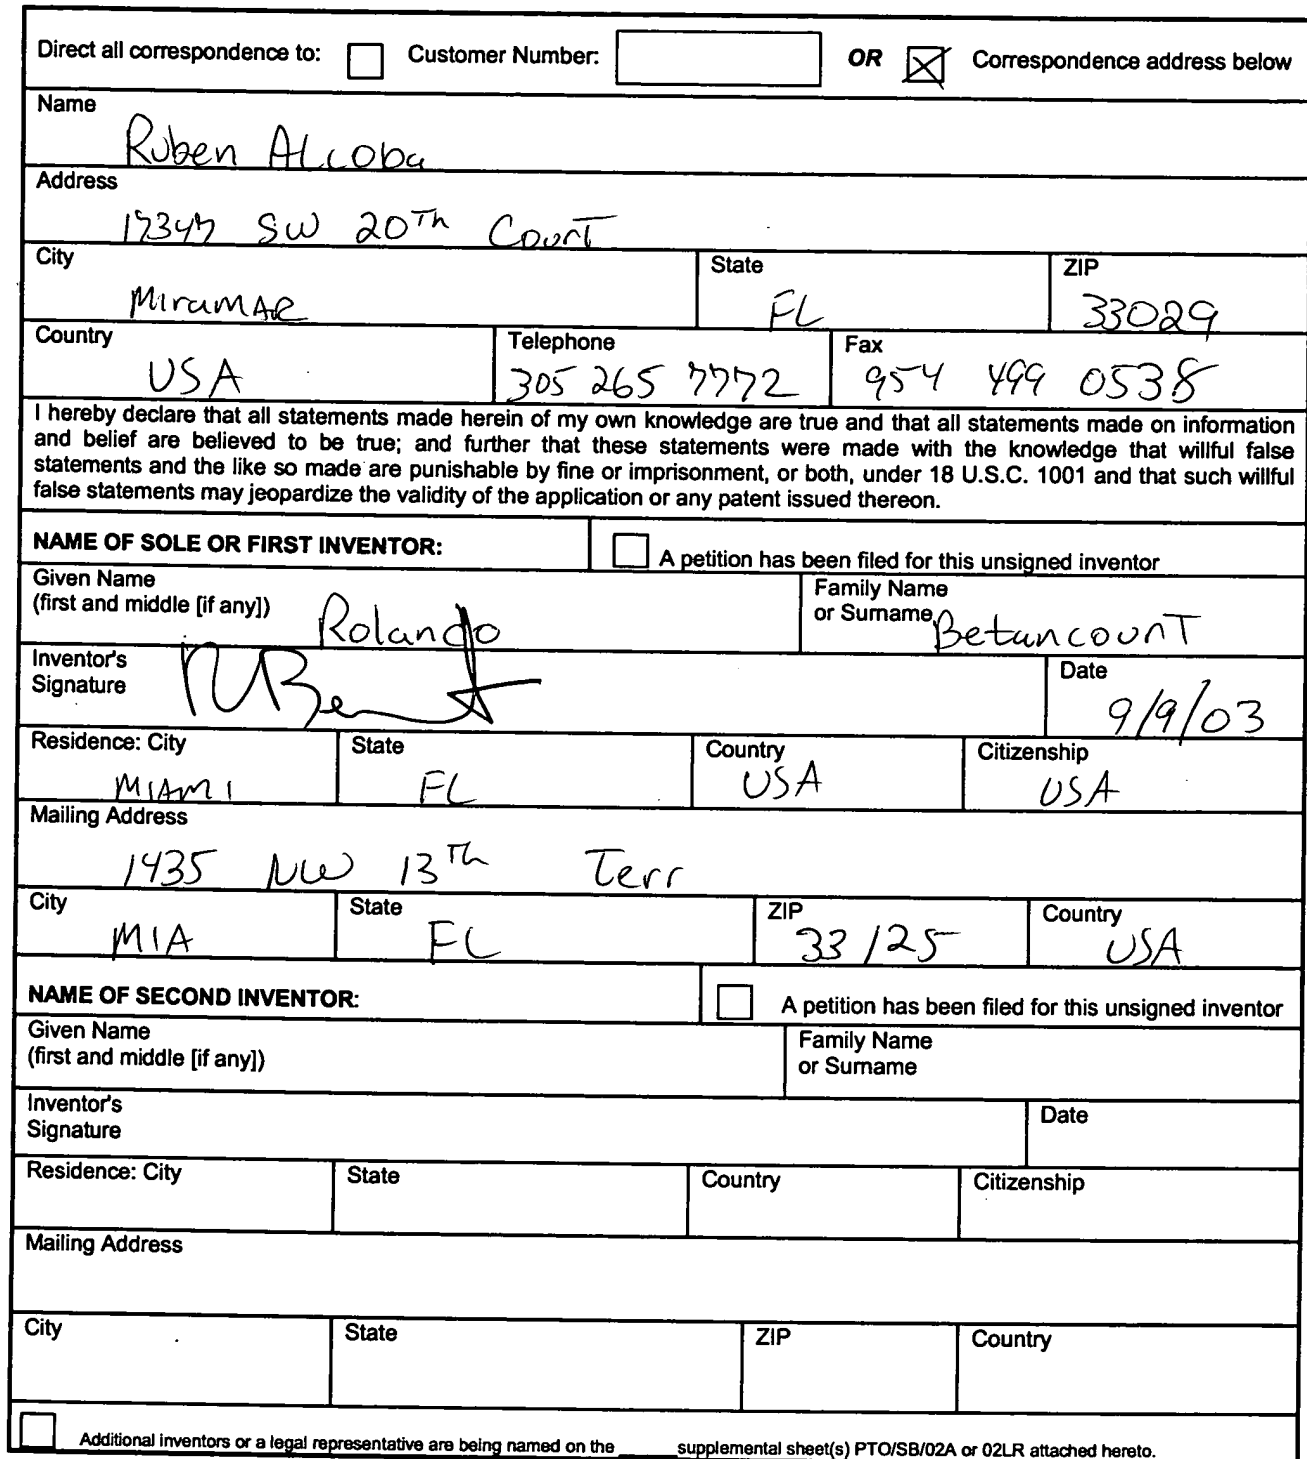 Direct all correspondence to: Customer Number: OR Correspondence address below
Name
Ruben Alcoba
Address
17347 SW 20Th Court
City State ZIP
MiramAR FL 33029
Country Telephone Fax
USA 305 265 7772 954 499 0538
I hereby declare that all statements made herein of my own knowledge are true and that all statements made on information
and belief are believed to be true; and further that these statements were made with the knowledge that willful false
statements and the like so made are punishable by fine or imprisonment, or both, under 18 U.S.C. 1001 and that such willful
false statements may jeopardize the validity of the application or any patent issued thereon.
NAME OF SOLE OR FIRST INVENTOR: A petition has been filed for this unsigned inventor
Given Name Family Name
(first and middle [if any]) Rolando or Surname Betancourt
Inventor's Date
Signature 9/9/03
Residence: City State Country Citizenship
MIAMI FL USA USA
Mailing Address
1435 NW 13Th Terr
City State ZIP Country
MIA FL 33125 USA
NAME OF SECOND INVENTOR: A petition has been filed for this unsigned inventor
Given Name Family Name
(first and middle [if any]) or Surname
Inventor's Date
Signature
Residence: City State Country Citizenship
Mailing Address
City State ZIP Country
Additional inventors or a legal representative are being named on the _____ supplemental sheet(s) PTO/SB/02A or 02LR attached hereto.